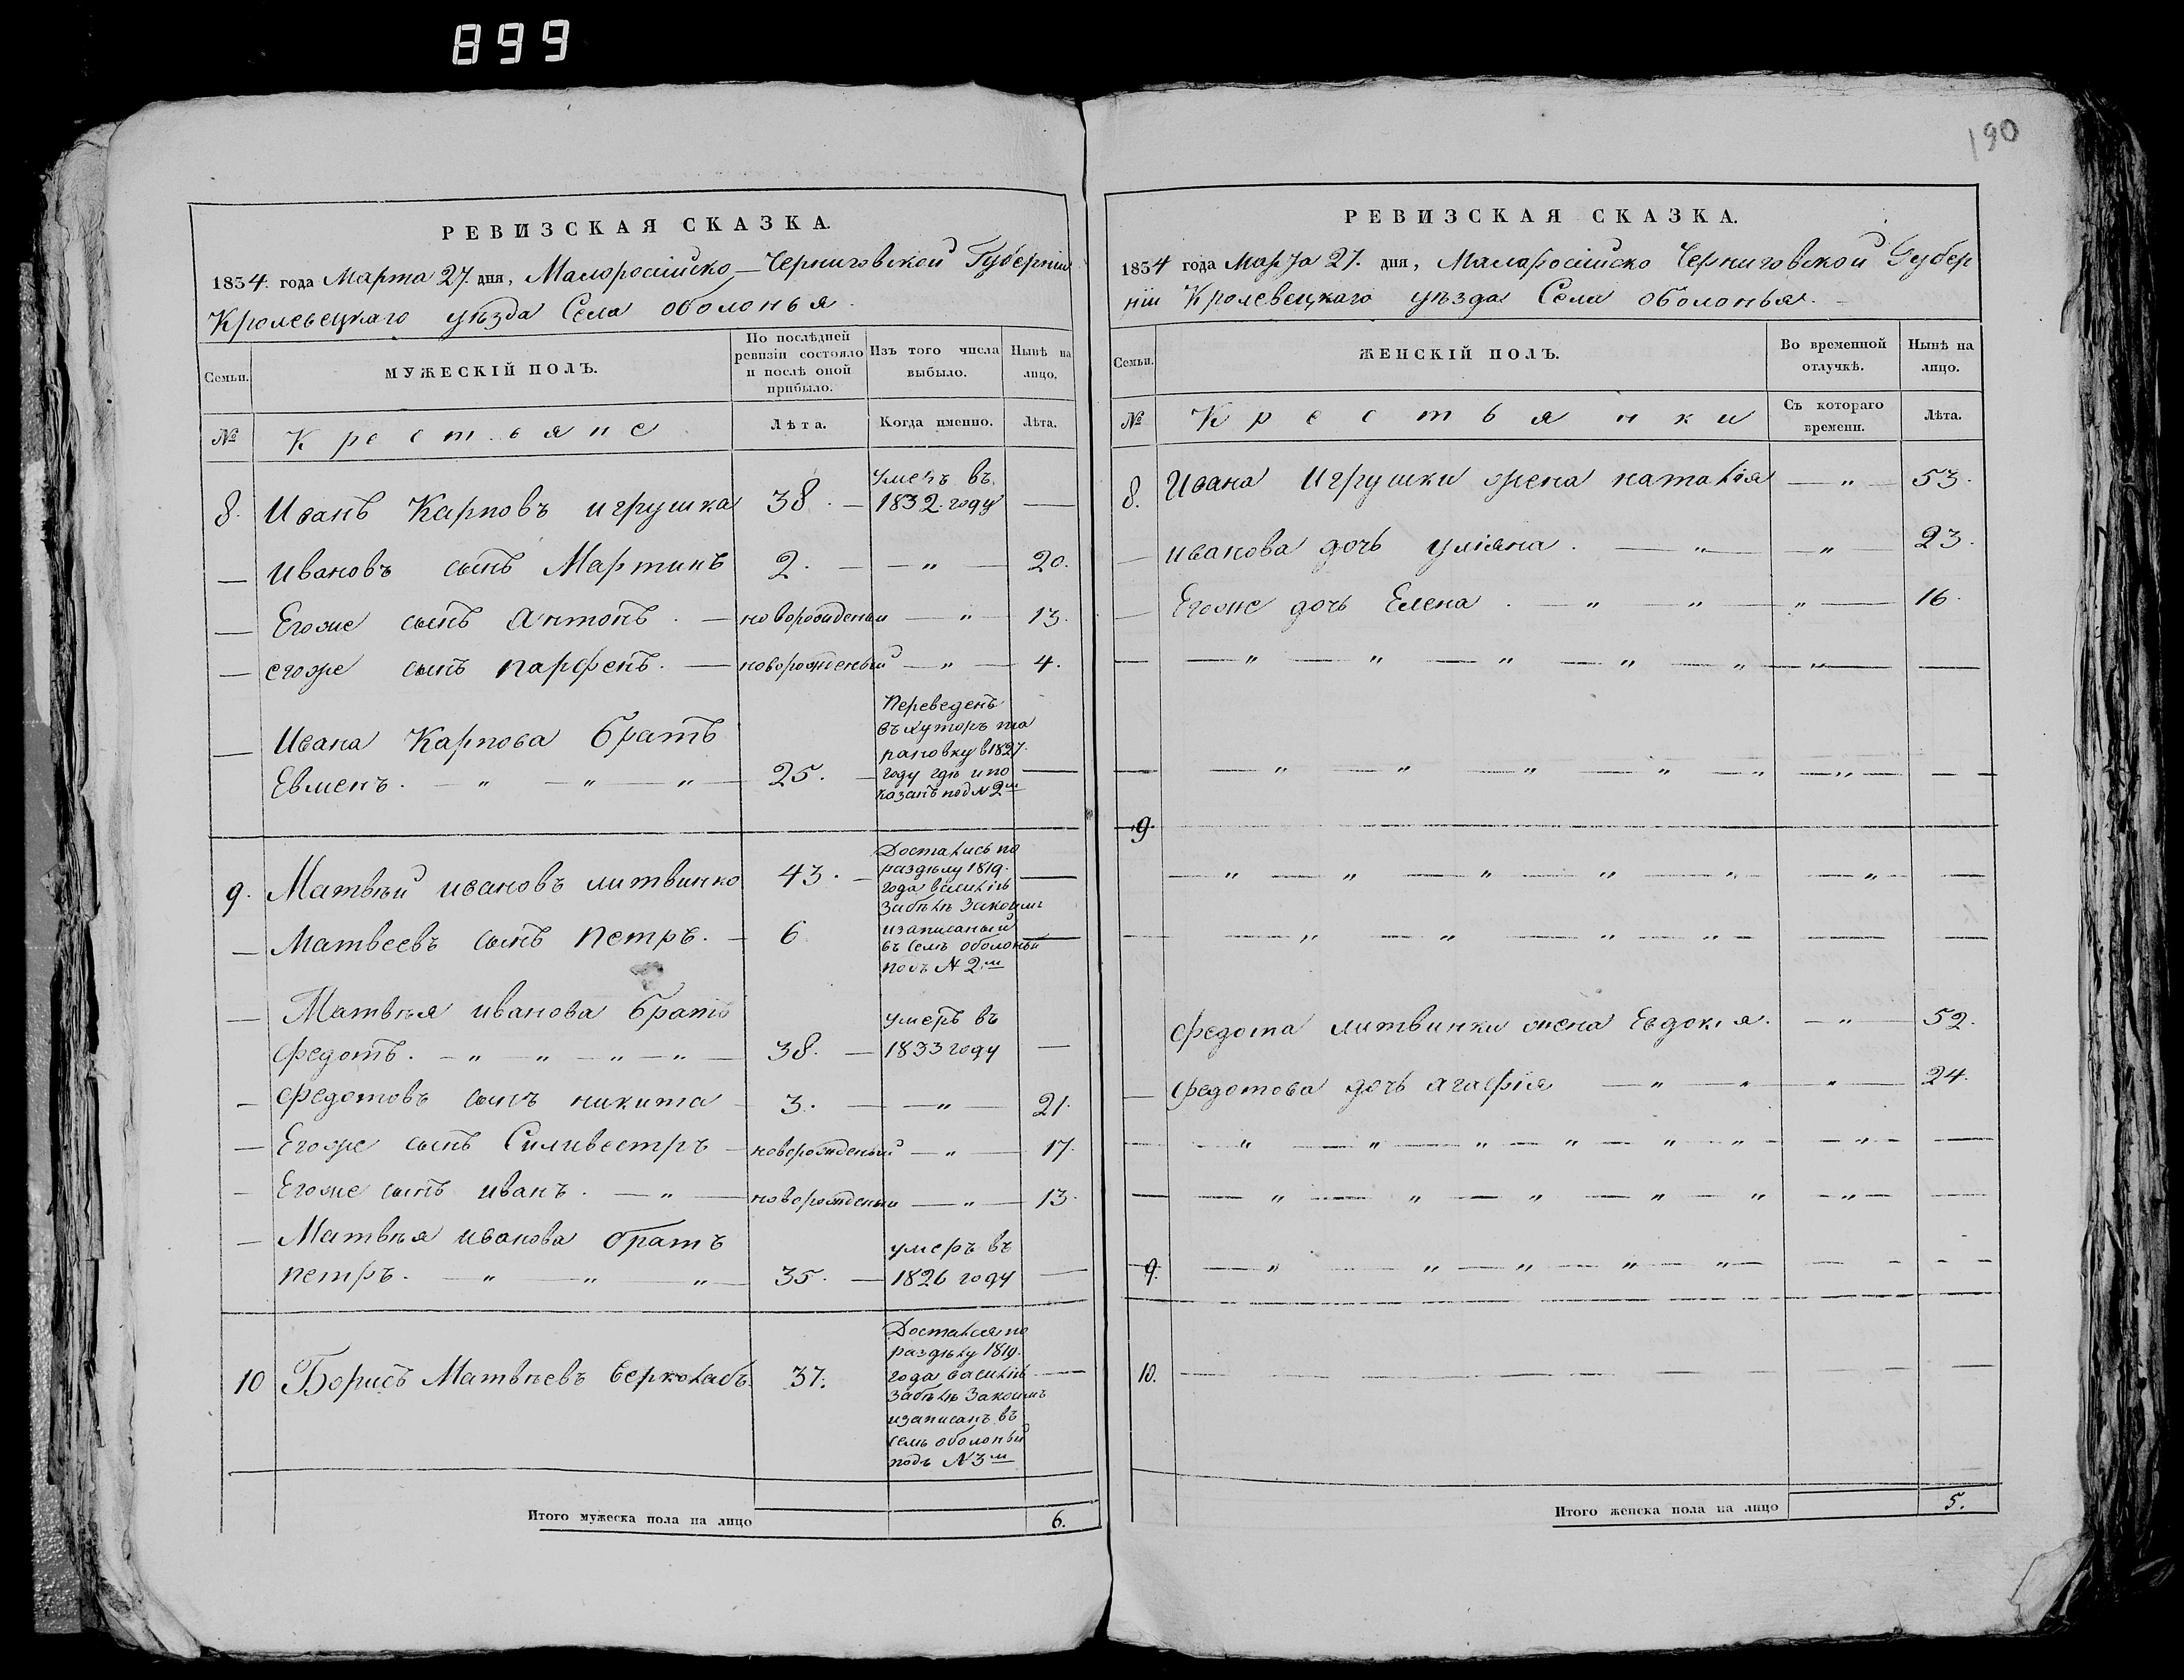 899
190
РЕВИЗСКАЯ СКАЗКА.
1834. года Марта 27. дня, Малоросiйско – Черниговской Губернiи
Кролевецкаго уѣзда Села оболонья.
Семьи.
МУЖЕСКIЙ ПОЛЪ.
По послѣдней ревизiи состояло и послѣ оной прибыло.
Изъ того числа выбыло.
Нынѣ на лицо.
№
Крестьяне
Лѣта.
Когда именно.
Лѣта.
8. Иванъ Карповъ игрушка 38. — умеръ въ 1832. году —
— ивановъ сынъ Мартинъ 2. — — „ — 20.
— Егоже сынъ Антонъ. — новорожденыи — „ — 13.
— егоже сынъ парфенъ. — новорожденый — „ — 4.
— Ивана Карпова братъ
Евменъ. — „ — „ — „ — 25. —
Переведенъ
въ хуторъ та
рановку в 1827.
году гдѣ и по
казанъ под N 2м
—
9. Матвѣй ивановъ литвинко 43. —
— Матвеевъ сынъ петръ. — 6
Достались по
раздѣлу 1819.
года василiю
Забѣлѣ Закоимъ
изаписаный
въ селѣ оболоньи
подъ N 2.м
—
— Матвѣя иванова братъ
федотъ. — „ — „ — „ — „ — 38. — умеръ въ 1833 году —
— федотовъ сынъ никита — 3. — — „ — 21.
— Егоже сынъ Силивестръ — новорожденый — „ — 17.
— Егоже сынъ иванъ. — „ — новорожденыи — „ — 13.
— Матвѣя иванова братъ
петръ. — „ — „ — „ — 35. — умеръ въ 1826 году —
10 Борисъ Матвѣевъ верколабъ. 37.
Достался по
раздѣлу 1819.
года василiю
Забѣлѣ Закоимъ
изаписанъ въ
селѣ оболоньи
подъ N 3м
—
Итого мужеска пола на лицо 6.
РЕВИЗСКАЯ СКАЗКА.
1834 года Марта 27. дня, Маларосiйско Черниговской Губер
нiи Кролевецкаго уѣзда Села оболонья. —
Семьи.
ЖЕНСКIЙ ПОЛЪ.
Во временной отлучкѣ.
Нынѣ на лицо.
№
Крестьянки
Съ котораго времени.
Лѣта.
8. Ивана Игрушки жена наталiя — „ — 53.
— иванова дочь улiяна. — „ — — „ — 23.
— Егоже дочь Елена. — „ — „ — „ — 16.
— — „ — „ — „ — „ — „ — „ — —
— — „ — „ — „ — „ — „ — „ — — —
9.
— „ — „ — „ — „ — „ — „ — —
— — „ — „ — „ — „ — — —
федота литвинки жена Евдокiя. — „ — 52.
— федотова дочь агафiя — „ — „ „ — 24.
— „ — „ — „ — „ — „ — „ — — „ — —
— — „ — „ — „ — „ — „ — „ — —
9. — „ — „ — „ — „ — „ — — — — —
10. — — — — — — — —
Итого женска пола на лицо 5.